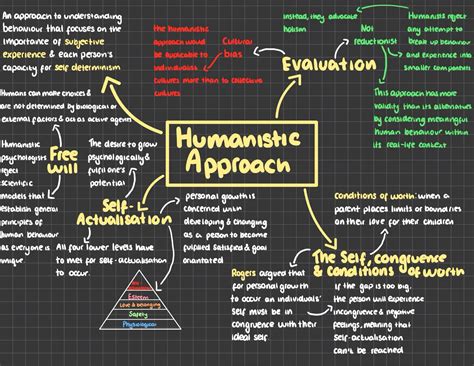 An approach to understanding
behaviour that focuses on the
importance of subjective
experience & each person's
capacity for self determinism
the humanistic
approach would
be applicable to
individualist
cultures more than to collectivist
cultures
Cultural
bias
instead, they advocate
holism
Not
reductionist
Humanists reject
any attempt to
break up behaviour
and experience into
smaller components
Evaluation
This approach has more
validity than its alternatives
by considering meaningful
human behaviour within
its real-life context
Humans can make choices &
are not determined by biological or
external factors & as active agents
Humanistic
Approach
Humanistic
psychologists
reject
scientific
models that
establish general
principles of
human behaviour
as everyone is
unique
Free
will
The desire to grow
psychologically &
fulfil one's
potential
Self-
Actualisation
All four lower levels have
to met for self-actualisation
to occur.
Esteem
Love & belonging
Safety
Physiological
personal growth is
concerned with
developing & changing
as a person to become
fulfilled satisfied & goal
orientated
Conditions of worth: when a
parent places limits or boundaries
on their love for their children
The Self, congruence
& conditions of worth
Rogers argued that
for personal growth
to occur an individuals'
self must be in
congruence with their
ideal self
If the gap is too big.
the person will experience
incongruence & negative
feelings, meaning that
self-actualisation
can't be reached